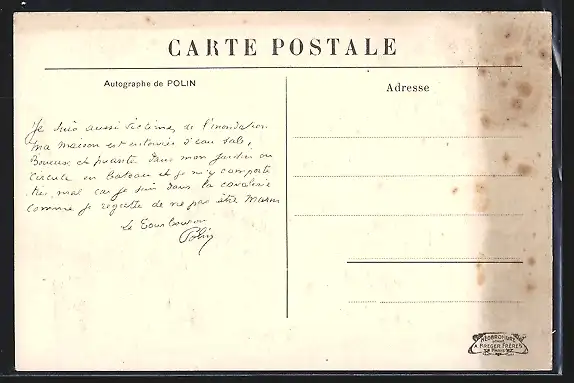 CARTE POSTALE
Autographe de POLIN
Adresse
Je suis aussi victime, de l'inondation
ma maison est entourée d'eau sale,
Boueuse et puante. Dans mon jardin on
circule en bateau et je m'y comporte
très mal car je suis dans la cavalerie
comme je regrette de ne pas être marin
Le Tourlourou
Polin
NÉOBROMURE
A. BREGER FRÈRES
PARIS